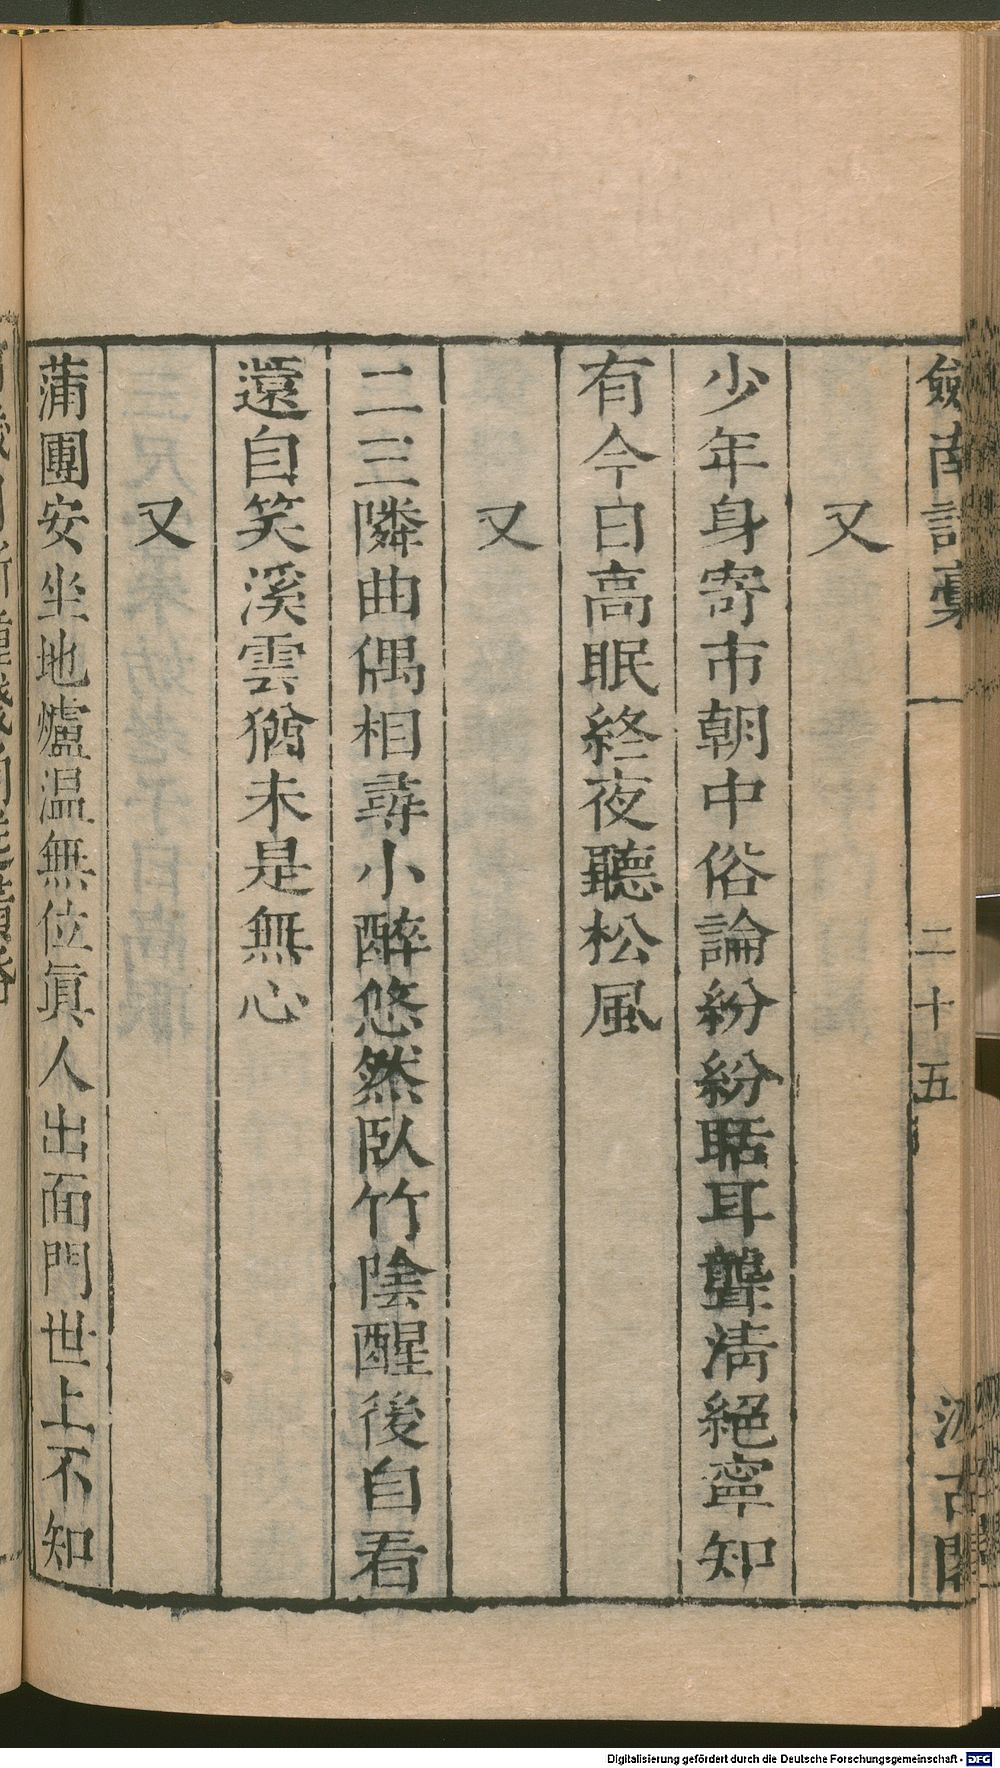 劍南詩稾　一　二十五　汲古閣
又
少年身寄市朝中俗論紛紛聒耳聾淸絕寧知
有今日高眠終夜聽松風
又
二三隣曲偶相尋小醉悠然臥竹陰醒後自看
還自笑溪雲猶未是無心
又
蒲團安坐地爐温無位眞人出面門世上不知
Digitalisierung gefördert durch die Deutsche Forschungsgemeinschaft - DFG